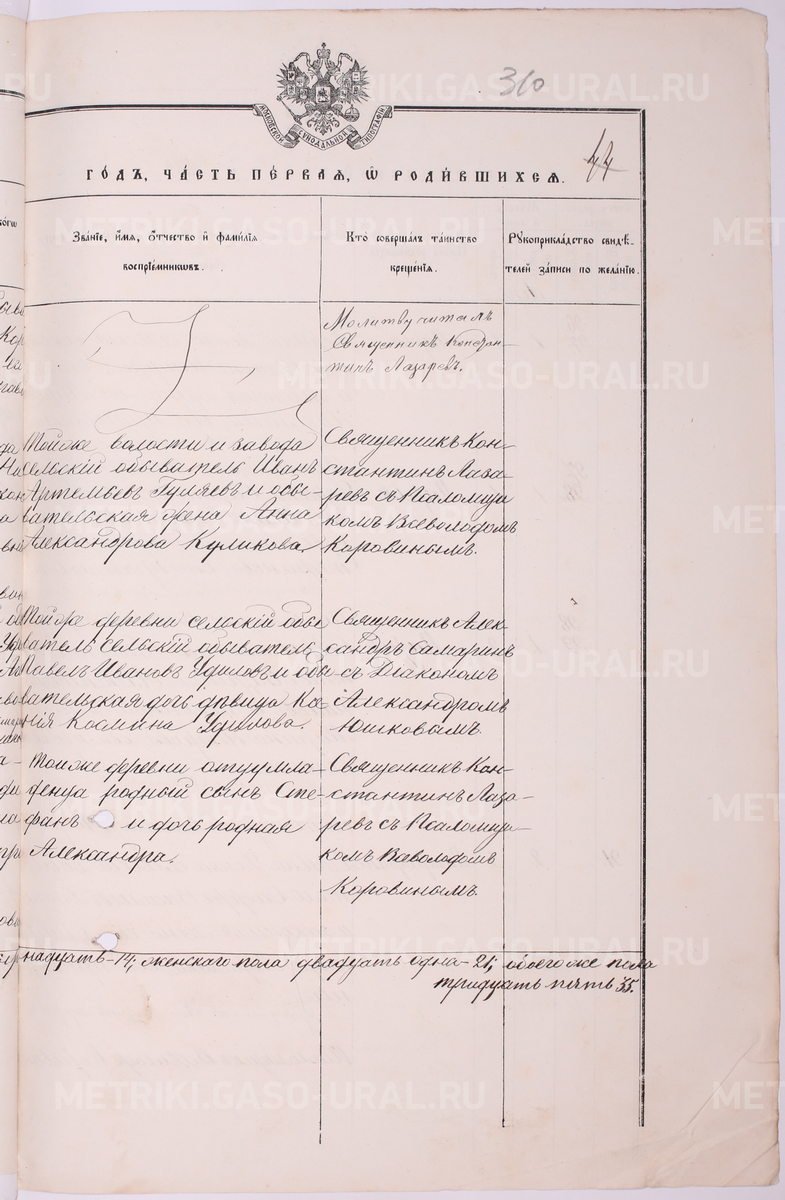 310
МОСКОВСКОЙ СѴНОДАЛЬНОЙ ТИПОГРАФІИ
44
ГОДЪ, ЧАСТЬ ПЕРВАЯ, Ѡ РОДИВШИХСЯ.
Званіе, имя, отчество и фамилія
воспріемниковъ.
Кто совершалъ таинство
крещенія.
Рукоприкладство свидѣ-
телей записи по желанію.
Молитву читалъ
Священникъ Констан-
тинъ Лазаревъ.
Той же волости и завода
сельскій обыватель Иванъ
Артемьевъ Гуляевъ и обы-
вательская жена Анна
Александрова Куликова.
Священникъ Кон-
стантинъ Лаза-
ревъ съ Псаломщи
комъ Всеволодомъ
Коровинымъ.
Той же деревни сельскій обы
ватель сельскій обыватель
Павелъ Ивановъ Удиловъ и обы
вательская дочь дѣвица Ксе
нія Космина Удилова.
Священникъ Алек-
сандръ Самаринъ
съ Діакономъ
Александромъ
Юшковымъ.
Той же деревни отцу мла-
денца родный сынъ Сте-
фанъ и дочь родная
Александра.
Священникъ Кон-
стантинъ Лаза-
ревъ съ Псаломщи-
комъ Всеволодомъ
Коровинымъ.
надцать - 14; женскаго пола двадцать одна - 21; обоего же пола
тридцать пять 35.
METRIKI.GASO-URAL.RU